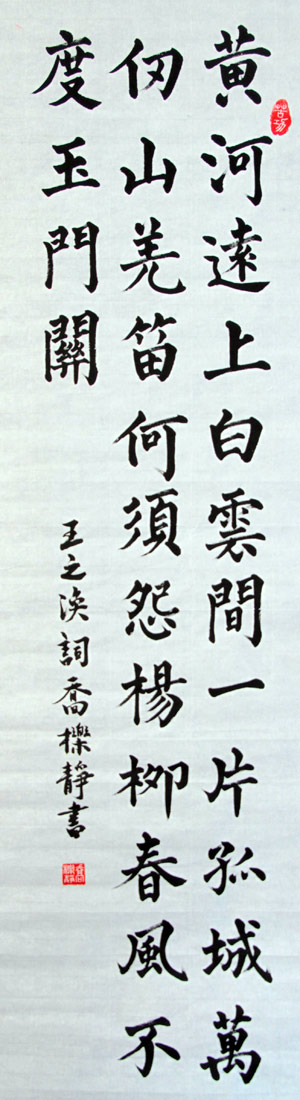 黄河遠上白雲間一片孤城萬
仞山羌笛何須怨楊柳春風不
度玉門關
王之渙詞喬櫟靜書